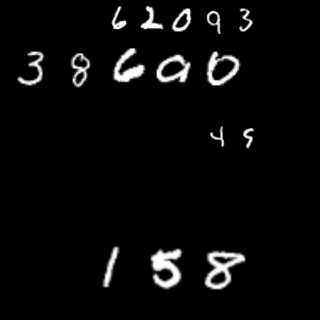 62093
38600
45
158